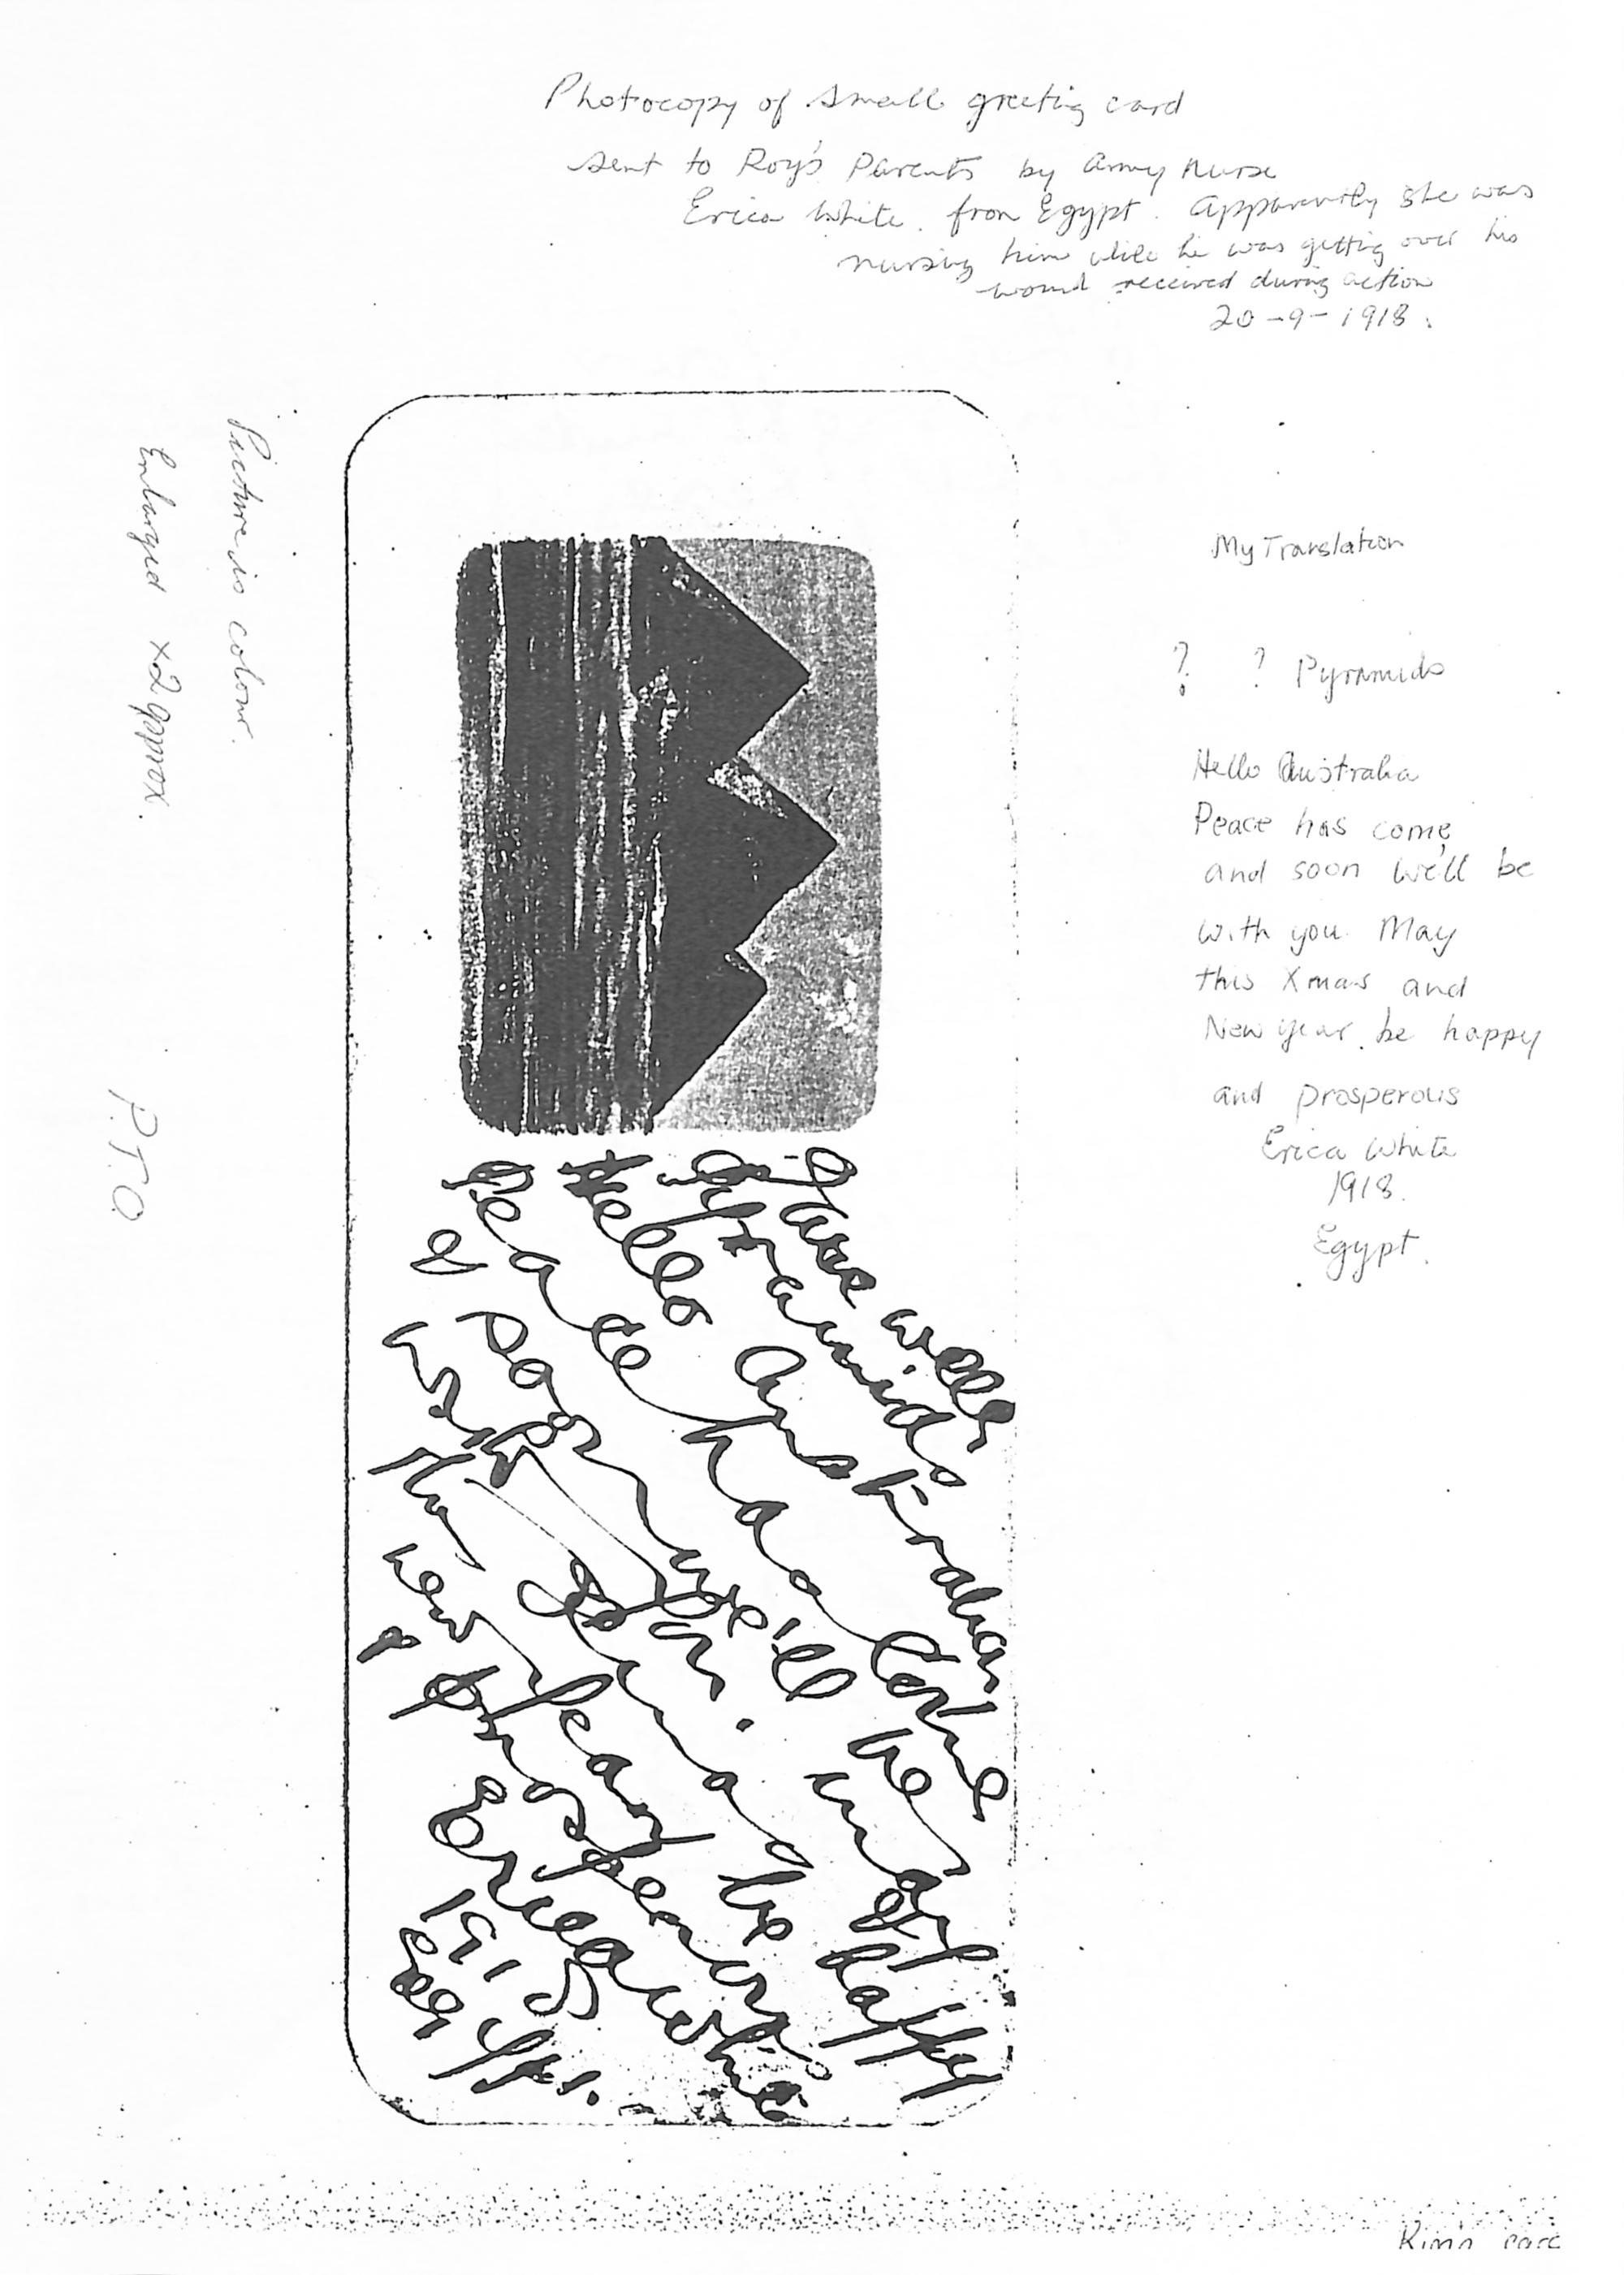 Photocopy of small greeting card
sent to Roy's Parents by Army Nurse
Erica White. from Egypt. Apparently she was
nursing him while he was getting over his
wound received during action
20-9-1918.
Picture is colour.
Enlarged x2 approx.
P.T.O
My Translation
? ? Pyramids
Hello Australia
Peace has come,
and soon we'll be
with you. May
this Xmas and
New year. be happy
and prosperous
Erica White
1918.
Egypt.
wells
Pyramids
Hello Australia
Peace has come
& soon we'll be
with you. may
this Xmas &
new year be happy
& prosperous
Erica White
1918
Egypt.